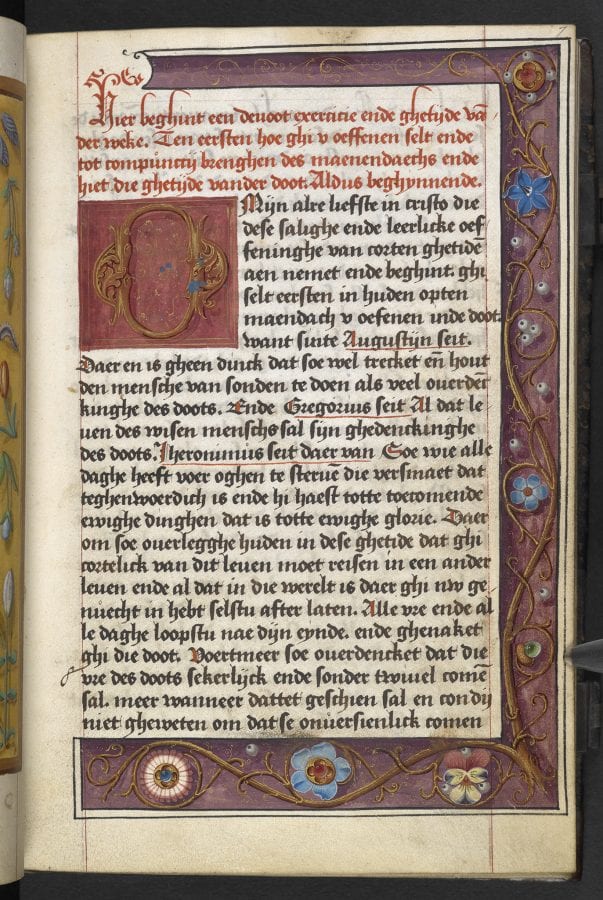 Hier beghint een deuoot exercitie ende ghetijde vā
der weke. Ten eersten hoe ghi v oeffenen selt ende
tot compunctij brenghen des maenendaechs ende
hiet die ghetijde vander doot. Aldus beghynnende.
O Mijn alre liefste in cristo die
dese salighe ende leerlicke oef
feninghe van corten ghetide
aen nemet ende beghint. ghi
selt eersten in huden opten
maendach v oefenen inde doot.
want sinte Augustijn seit.
Daer en is gheen dinck dat soe wel trecket eñ hout
den mensche van sonden te doen als veel ouerdēc
kinghe des doots. Ende Gregorius seit Al dat le
uen des wisen menschs sal sijn ghedenckinghe
des doots. Jheronimus seit daer van Soe wie alle
daghe heeft voer oghen te steruē die versmaet dat
teghenwoerdich is ende hi haest totte toecomende
ewighe dinghen dat is totte ewighe glorie. Daer
om soe ouerlegghe huden in dese ghetide dat ghi
cortelick van dit leuen moet reisen in een ander
leuen ende al dat in die werelt is daer ghi nw ge
nuecht in hebt selstu after laten. Alle vre ende al
le daghe loopstu nae dijn eynde. ende ghenaket
ghi die doot. Voertmeer soe ouerdencket dat die
vre des doots sekerlijck ende sonder twiuel comē
sal. meer wanneer dattet geschien sal en con dij
niet gheweten om dat se onuersienlick comen